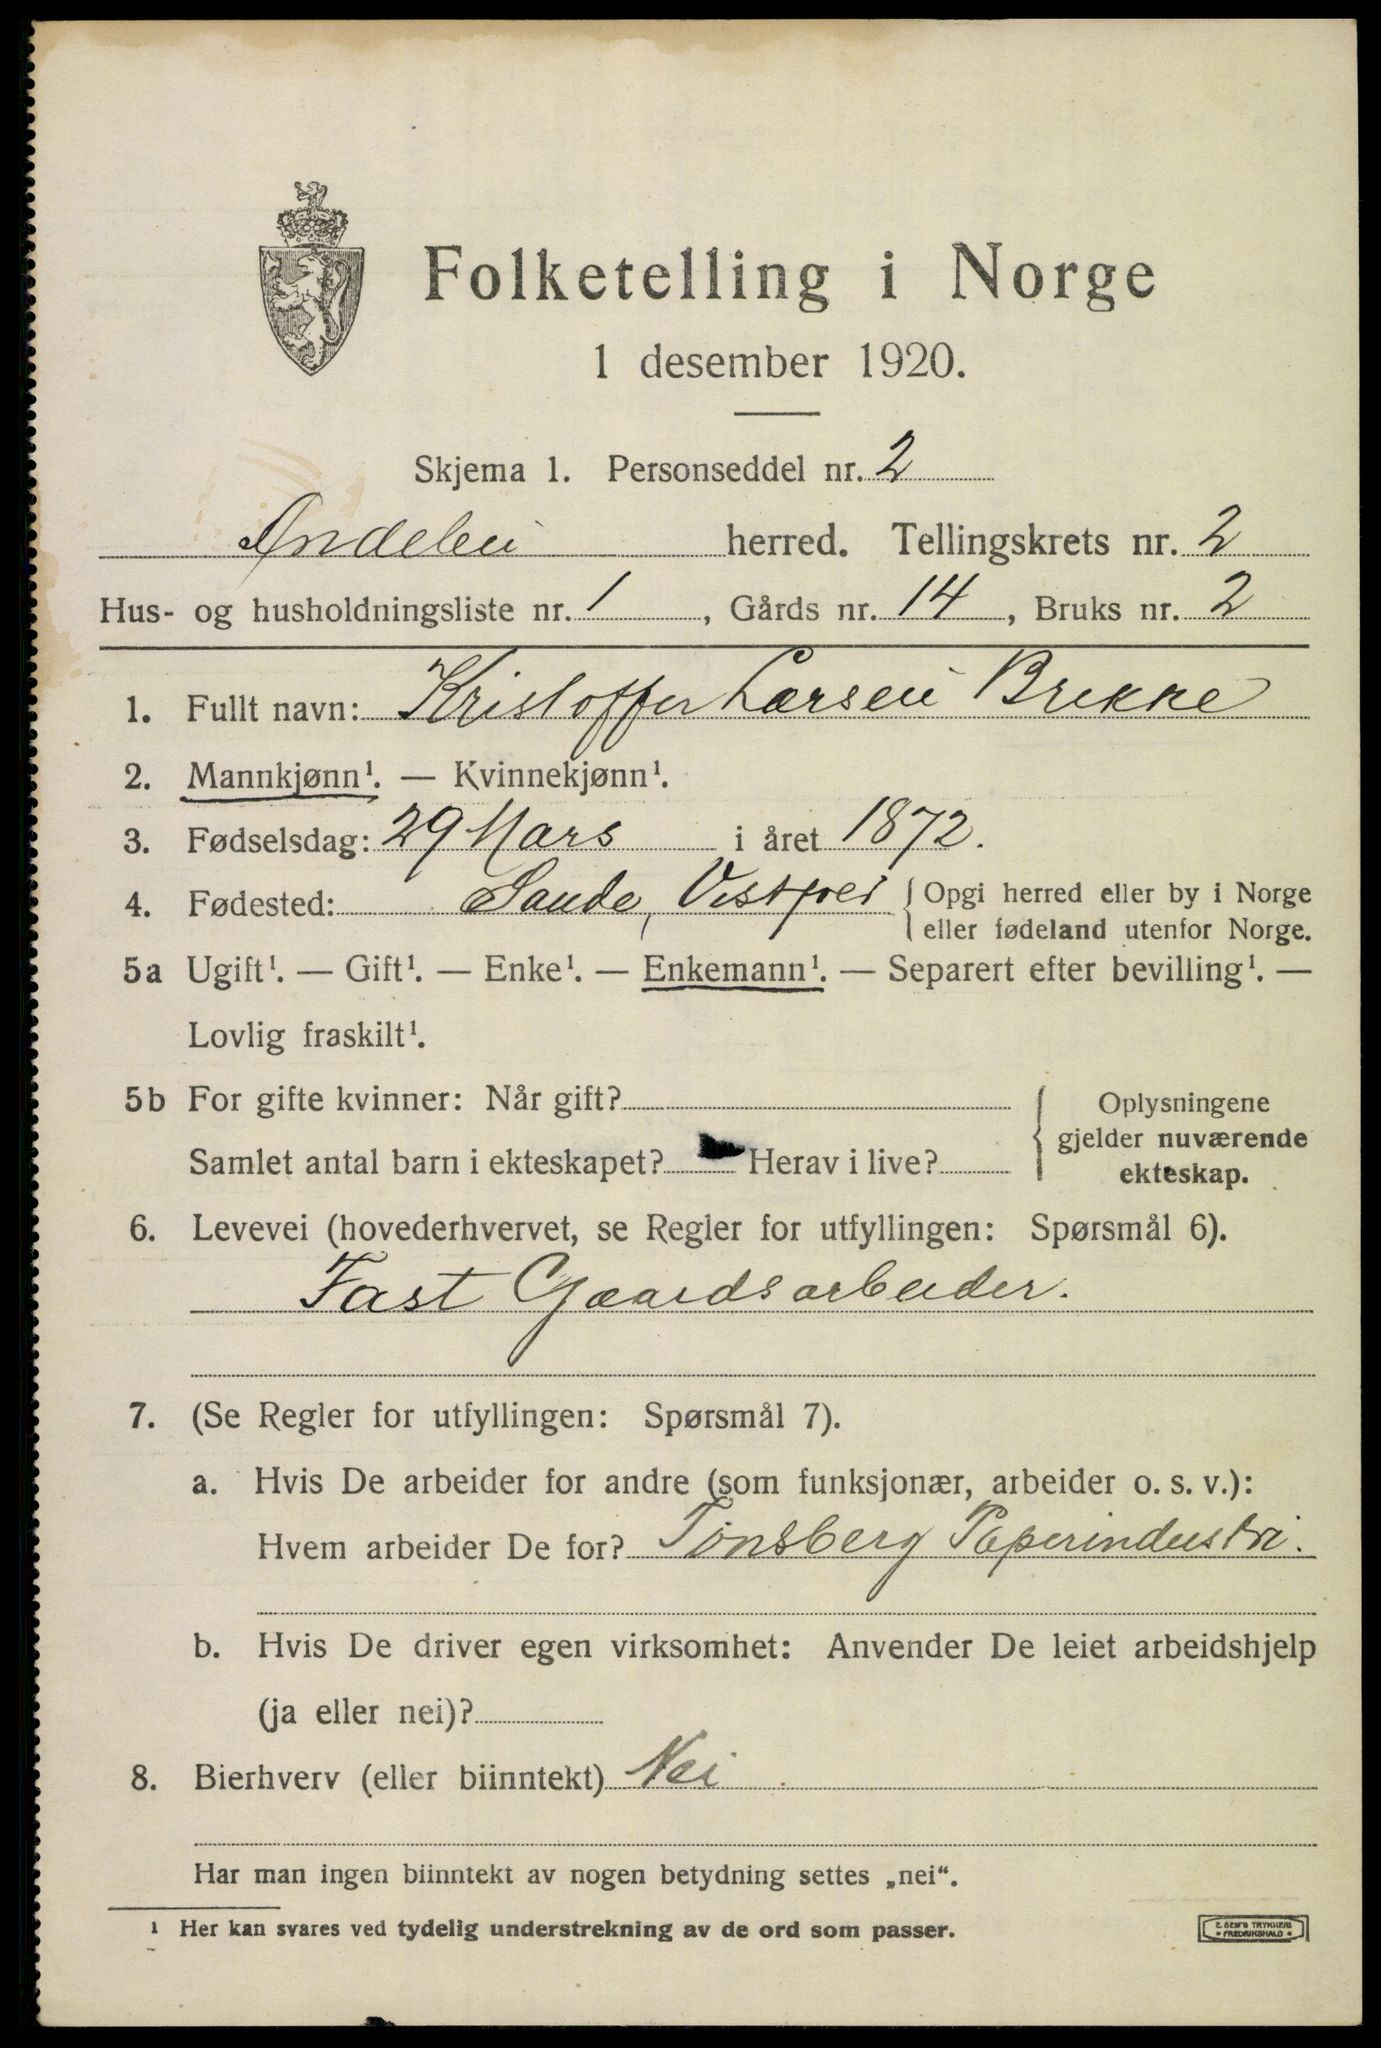 Folketelling i Norge
1 desember 1920.
Skjema 1. Personseddel nr. 2
Andebu herred. Tellingskrets nr. 2
Hus- og husholdningsliste nr. 1, Gårds nr. 14, Bruks nr. 2
1. Fullt navn: Kristoffer Larsen Brekke
2. Mannkjønn¹. — Kvinnekjønn¹.
3. Fødselsdag: 29 Mars i året 1872.
4. Fødested: Sande, Vestfol { Opgi herred eller by i Norge
eller fødeland utenfor Norge.
5a Ugift¹. — Gift¹. — Enke¹. — Enkemann¹. — Separert efter bevilling¹. —
Lovlig fraskilt¹.
5b For gifte kvinner: Når gift?
Samlet antal barn i ekteskapet? Herav i live?
{ Oplysningene
gjelder nuværende
ekteskap.
6. Levevei (hovederhvervet, se Regler for utfyllingen: Spørsmål 6).
Fast Gaardsarbeider.
7. (Se Regler for utfyllingen: Spørsmål 7).
a. Hvis De arbeider for andre (som funksjonær, arbeider o. s. v.):
Hvem arbeider De for? Tønsberg Paperindustri.
b. Hvis De driver egen virksomhet: Anvender De leiet arbeidshjelp
(ja eller nei)?
8. Bierhverv (eller biinntekt) Nei
Har man ingen biinntekt av nogen betydning settes „nei“.
¹ Her kan svares ved tydelig understrekning av de ord som passer.
E. SEM'S TRYKKERI
• FREDRIKSHALD •